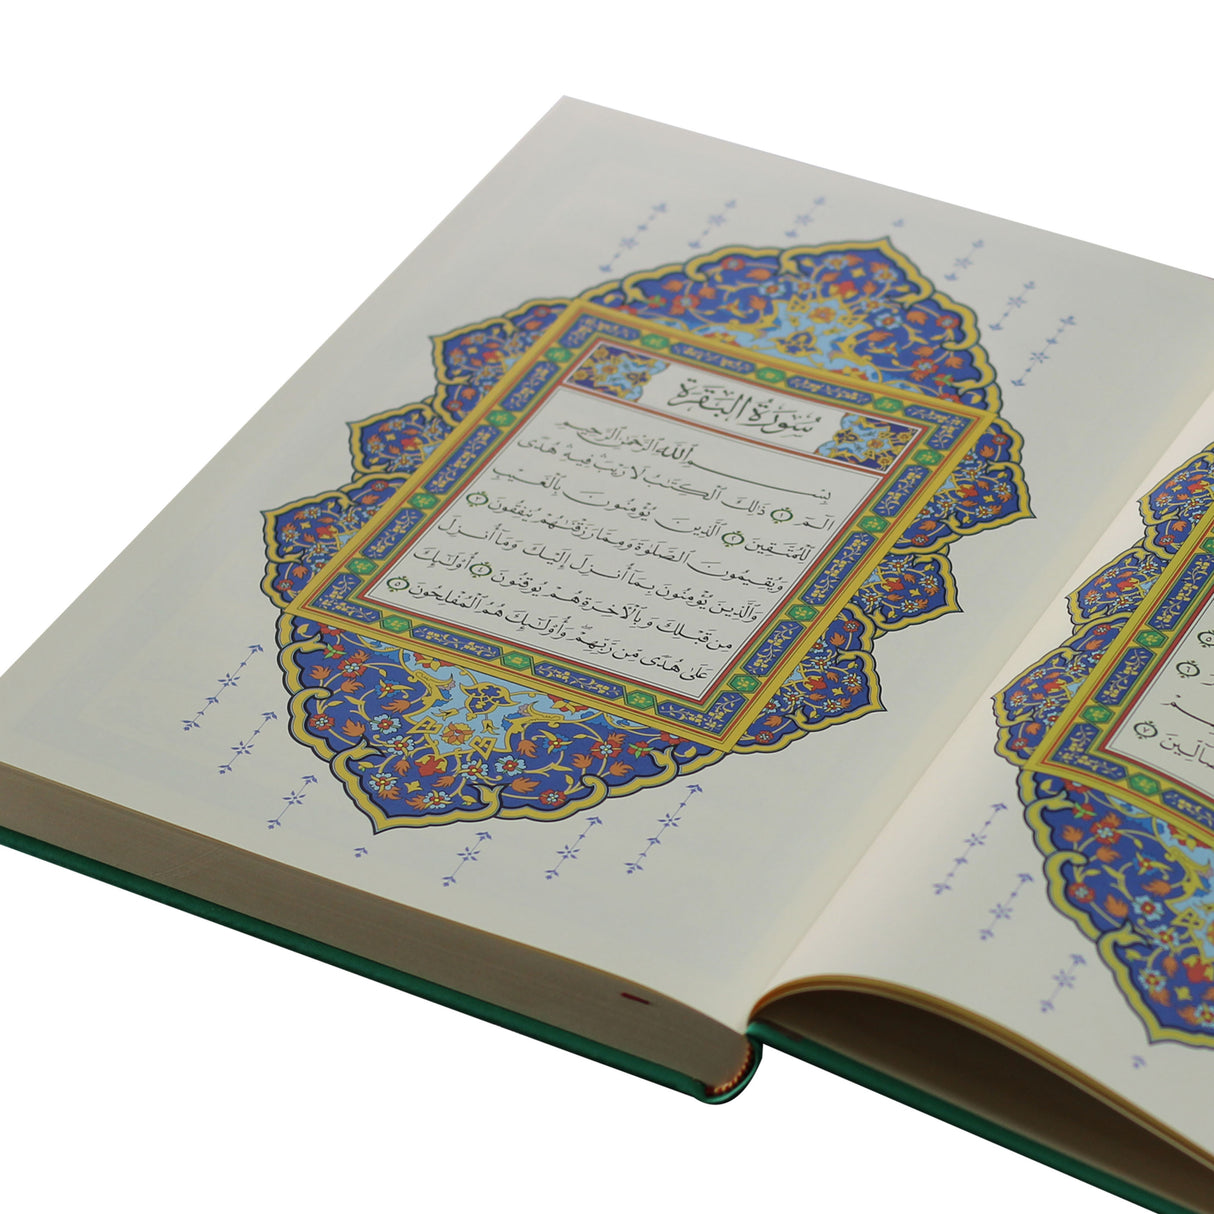 سُورَةُ البَقَرَةِ
بِسْمِ ٱللَّهِ ٱلرَّحْمَٰنِ ٱلرَّحِيمِ
الٓمٓ ١ ذَٰلِكَ ٱلْكِتَٰبُ لَا رَيْبَ ۛ فِيهِ ۛ هُدًى
لِّلْمُتَّقِينَ ٢ ٱلَّذِينَ يُؤْمِنُونَ بِٱلْغَيْبِ
وَيُقِيمُونَ ٱلصَّلَوٰةَ وَمِمَّا رَزَقْنَٰهُمْ يُنفِقُونَ ٣
وَٱلَّذِينَ يُؤْمِنُونَ بِمَآ أُنزِلَ إِلَيْكَ وَمَآ أُنزِلَ
مِن قَبْلِكَ وَبِٱلْءَاخِرَةِ هُمْ يُوقِنُونَ ٤ أُو۟لَٰٓئِكَ
عَلَىٰ هُدًى مِّن رَّبِّهِمْ ۖ وَأُو۟لَٰٓئِكَ هُمُ ٱلْمُفْلِحُونَ ٥